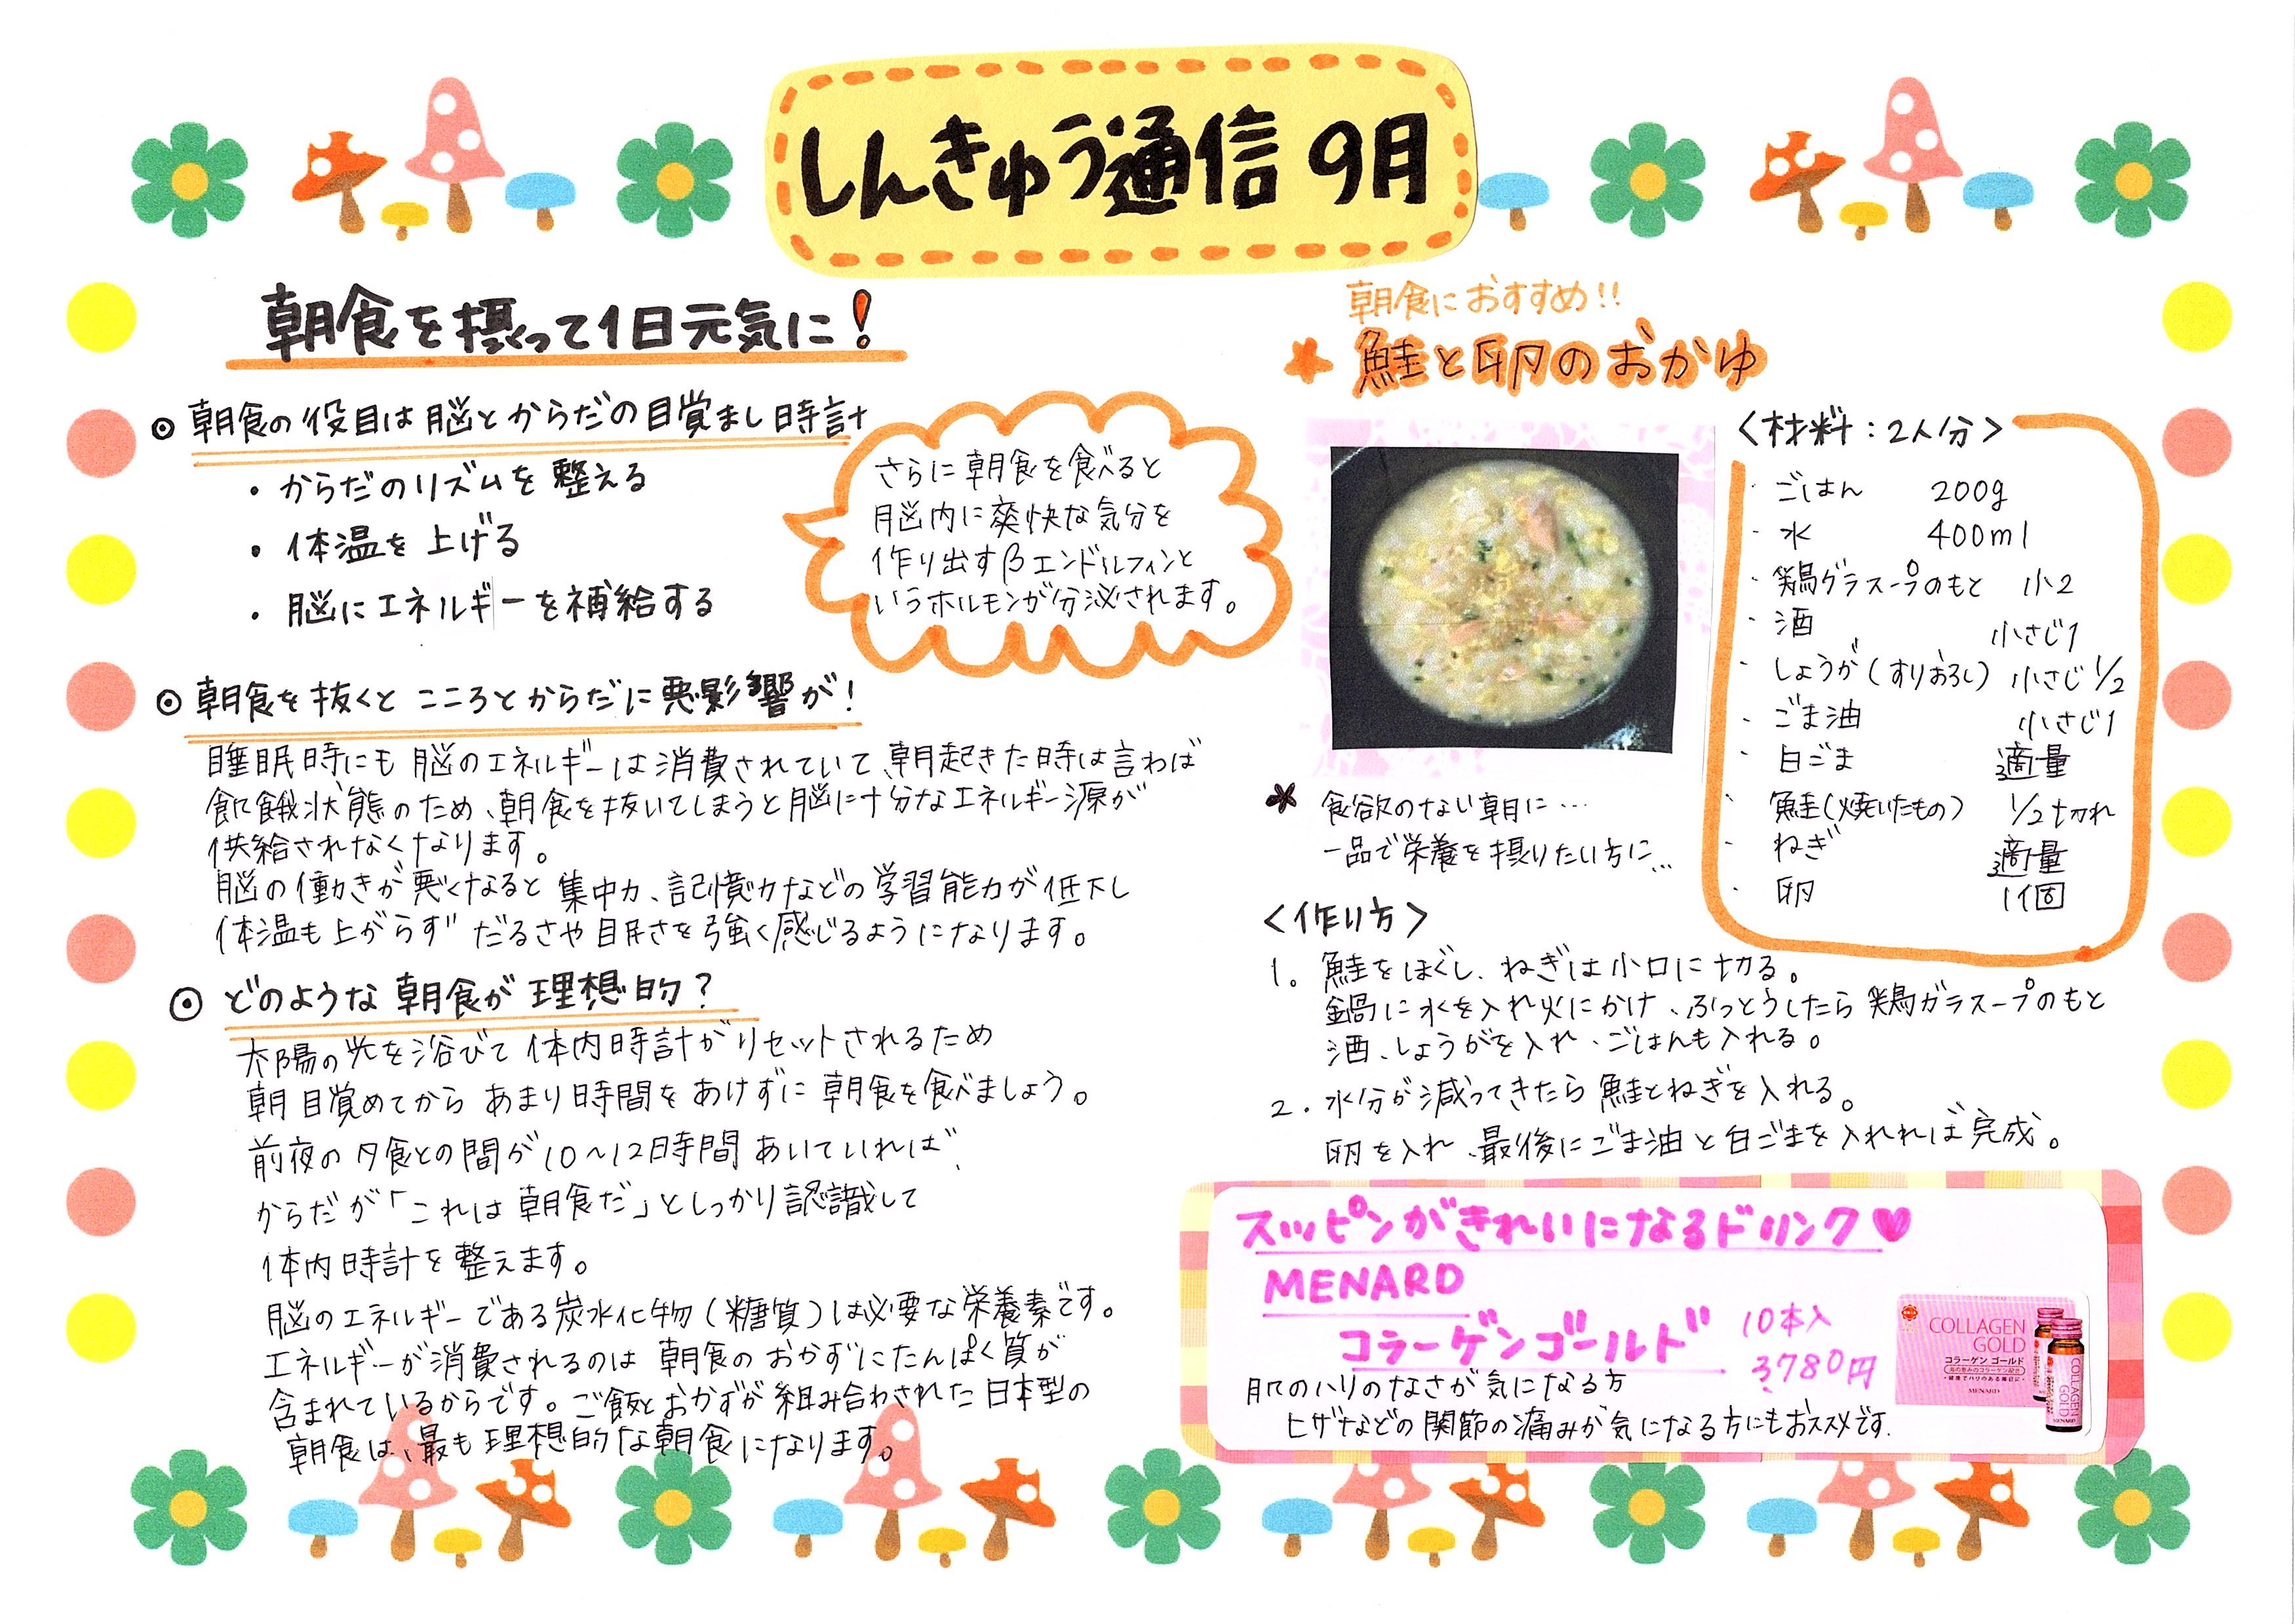 しんきゅう通信 9月
朝食を摂って1日元気に!
◎ 朝食の役目は脳とからだの目覚まし時計
・からだのリズムを整える
・体温を上げる
・脳にエネルギーを補給する
さらに朝食を食べると
脳内に爽快な気分を
作り出すβエンドルフィンと
いうホルモンが分泌されます。
◎ 朝食を抜くと こころとからだに悪影響が!
睡眠時にも脳のエネルギーは消費されていて、朝起きた時は言わば
飢餓状態のため、朝食を抜いてしまうと脳に十分なエネルギー源が
供給されなくなります。
脳の働きが悪くなると集中力、記憶力などの学習能力が低下し
体温も上がらず だるさや目民さを強く感じるようになります。
◎ どのような朝食が理想的?
太陽の光を浴びて体内時計がリセットされるため
朝目覚めてから あまり時間をあけずに朝食を食べましょう。
前夜の夕食との間が10～12時間あいていれば、
からだが「これは朝食だ」としっかり認識して
体内時計を整えます。
脳のエネルギーである炭水化物(糖質)は必要な栄養素です。
エネルギーが消費されるのは 朝食の おかずにたんぱく質が
含まれているからです。ご飯とおかずが組み合わされた日本型の
朝食は、最も理想的な朝食になります。
朝食におすすめ!!
★ 鮭と卵のおかゆ
<材料:2人分>
・ごはん 200g
・水 400ml
・鶏ガラスープのもと 小2
・酒 小さじ1
・しょうが(すりおろし) 小さじ1/2
・ごま油 小さじ1
・白ごま 適量
・鮭(焼いたもの) 1/2切れ
・ねぎ 適量
・卵 1個
* 食欲のない朝に…
一品で栄養を摂りたい方に…
<作り方>
1. 鮭をほぐし、ねぎは小口に切る。
鍋に水を入れ火にかけ、ふっとうしたら鶏ガラスープのもと
酒、しょうがを入れ、ごはんも入れる。
2. 水分が減ってきたら鮭とねぎを入れる。
卵を入れ、最後にごま油と白ごまを入れれば完成。
スッピンがきれいになるドリンク♥
MENARD
コラーゲンゴールド 10本入
3780円
肌のハリのなさが気になる方
ヒザなどの関節の痛みが気になる方にもおススメです.
COLLAGEN
GOLD
コラーゲン ゴールド
MENARD
COLLAGEN
GOLD
MENARD